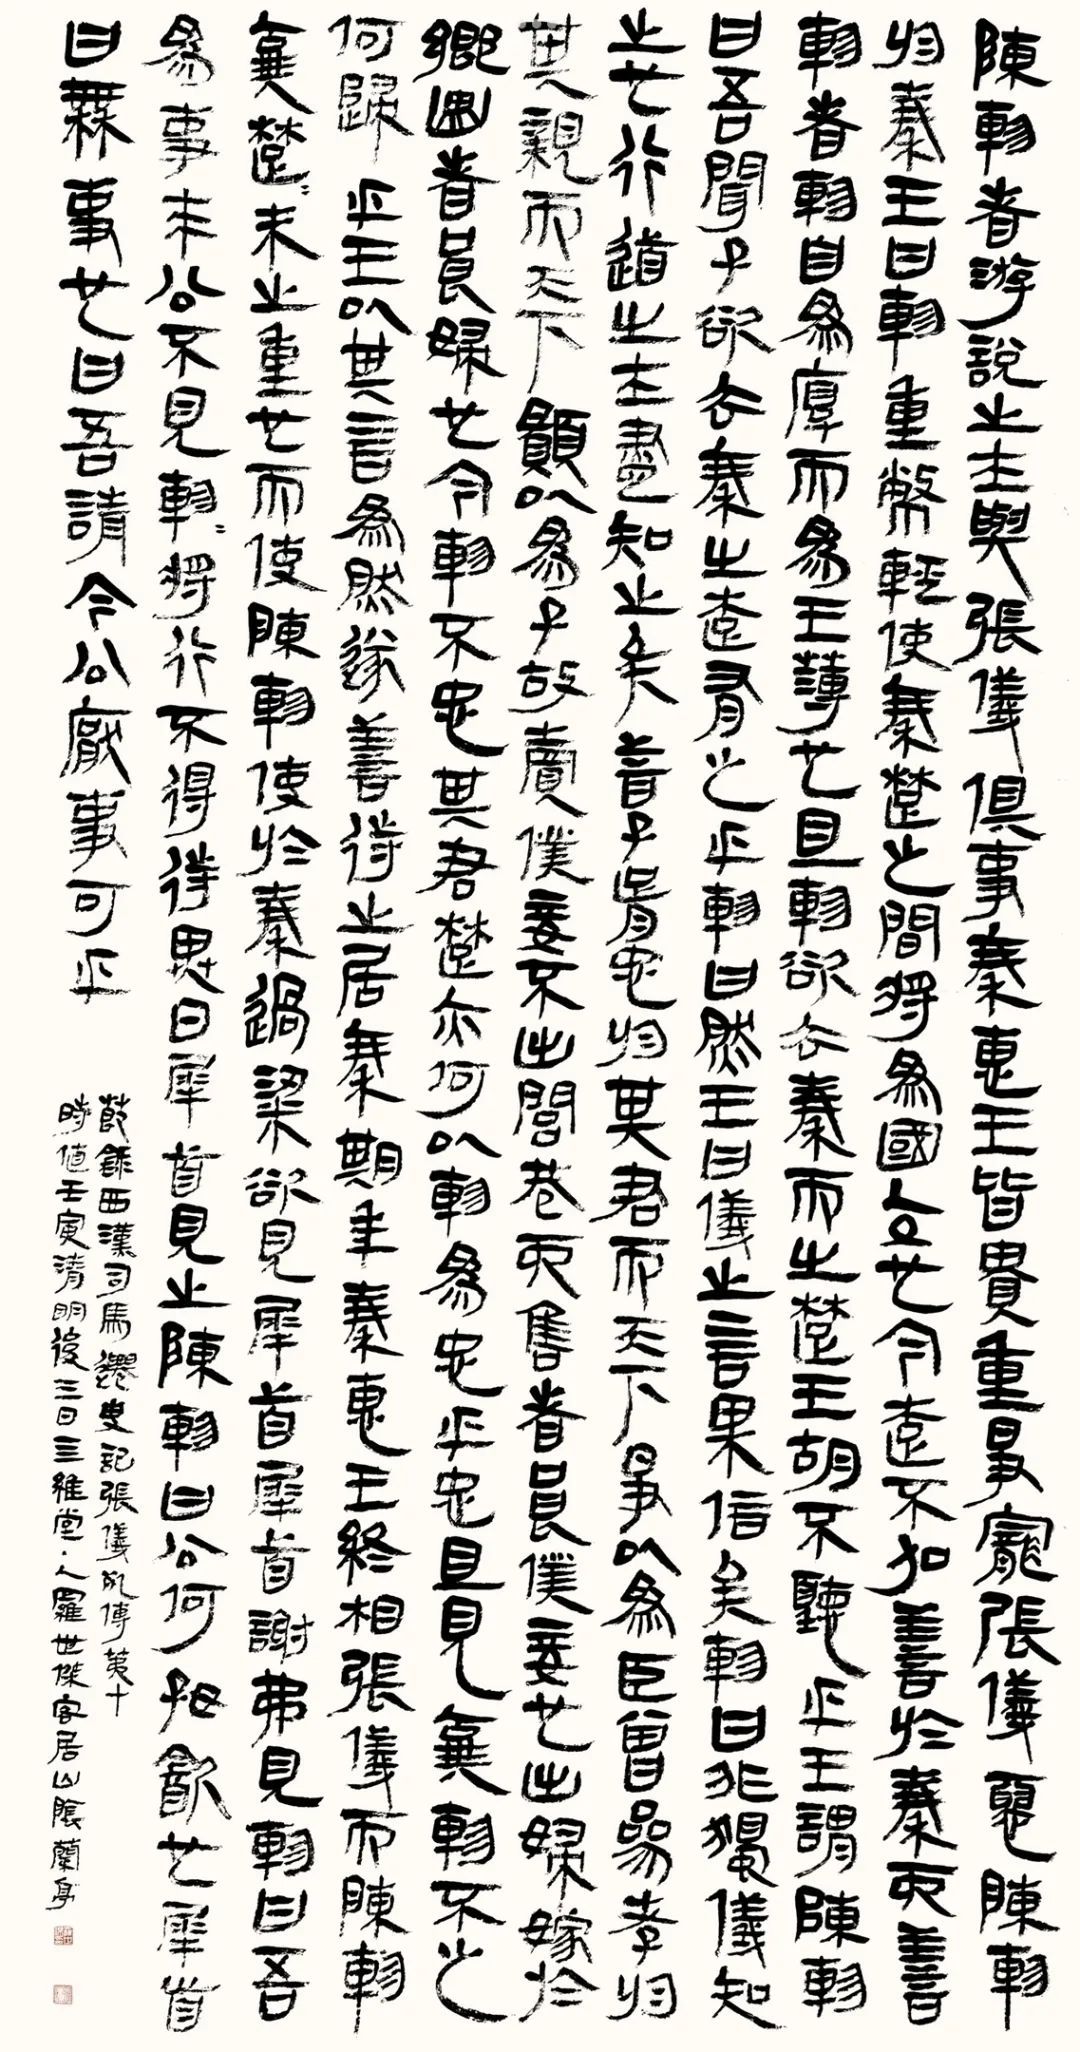 陳軫者游說之士與張儀俱事秦惠王皆貴重爭寵張儀惡陳軫
於秦王曰軫重幣輕使秦楚之間將為國交也今楚不加善於秦而善
軫者軫自為厚而為王薄也且軫欲去秦而之楚王胡不聽乎王謂陳軫
曰吾聞子欲去秦之楚有之乎軫曰然王曰儀之言果信矣軫曰非獨儀知
之也行道之士盡知之矣昔子胥忠於其君而天下爭以為臣曾參孝於
其親而天下願以為子故賣僕妾不出閭巷而售者良僕妾也出婦嫁於
鄉曲者良婦也今軫不忠其君楚亦何以軫為忠乎忠且見棄軫不之
何歸乎王以其言為然遂善待之居秦期年秦惠王終相張儀而陳軫
奔楚楚未之重也而使陳軫使於秦過梁欲見犀首犀首謝弗見軫曰吾
為事來公不見軫軫將行不得待異日犀首見之陳軫曰公何好飲也犀首
曰無事也曰吾請令公厭事可乎
節錄西漢司馬遷史記張儀列傳第十
時值壬寅清明後三日三維堂主人羅世傑客居山陰蘭亭